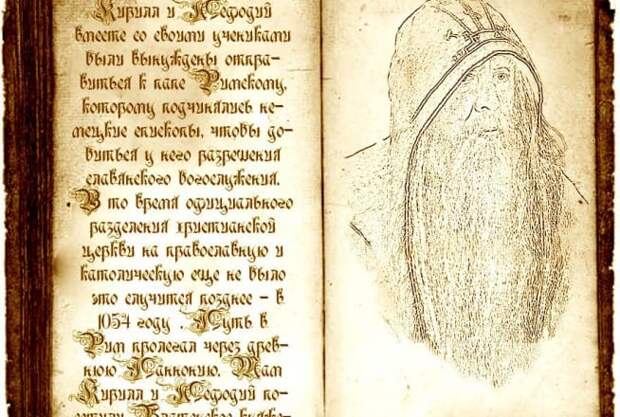 Кирилл и Мефодий
вместе со своими учениками
были вынуждены отпра-
виться к папе Римскому,
которому подчинялись не-
мецкие епископы, чтобы до-
биться у него разрешения
славянского богослужения.
В то время официального
разделения христианской
церкви на православную и
католическую еще не было
это случится позднее - в
1054 году . Путь в
Рим пролегал через древ-
нюю Паннонию. Там
Кирилл и Мефодий по-